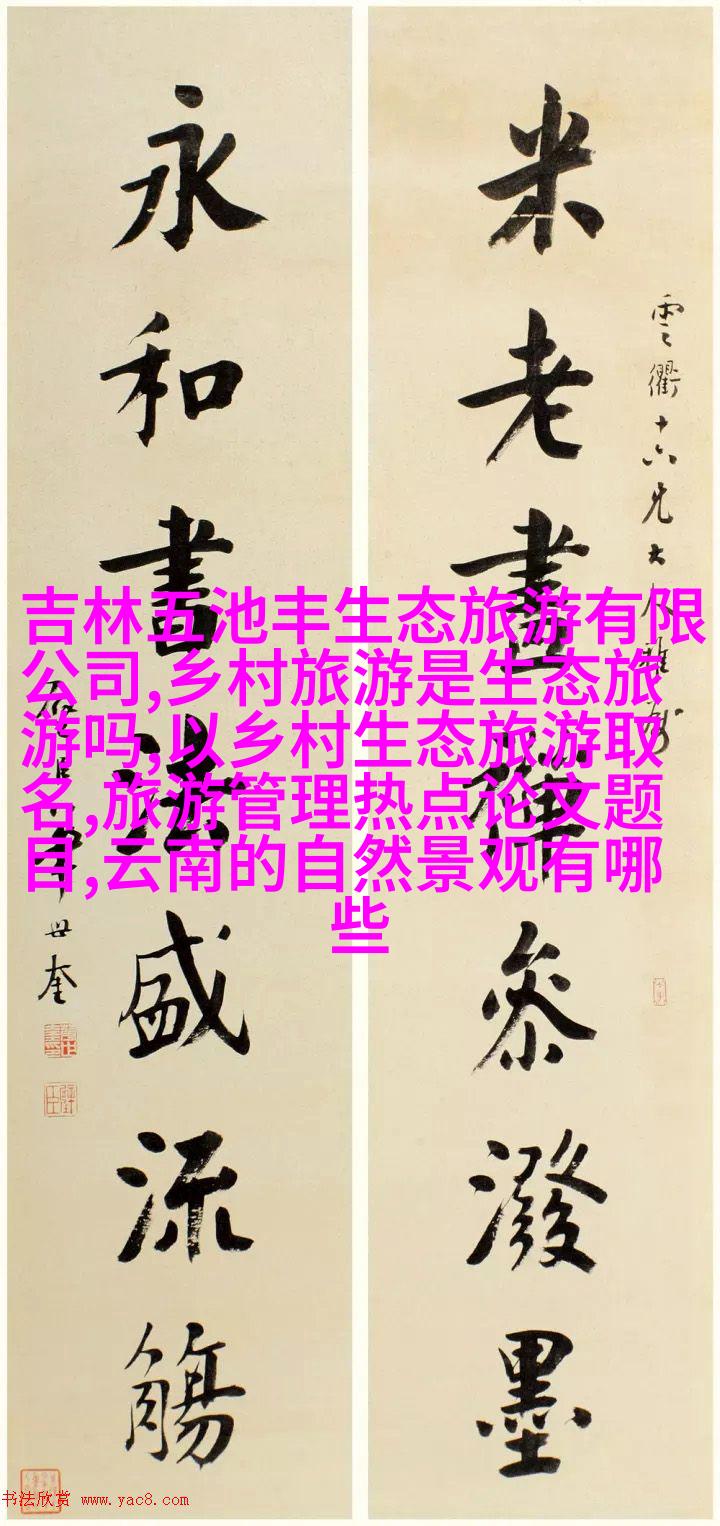 米老畫禪參潑墨
雲衢十六兄大人雅屬
永和書法盛流觴
世奎
吉林五池丰生态旅游有限
公司,乡村旅游是生态旅
游吗,以乡村生态旅游取
名,旅游管理热点论文题
目,云南的自然景观有哪
些
书法欣赏 www.yac8.com